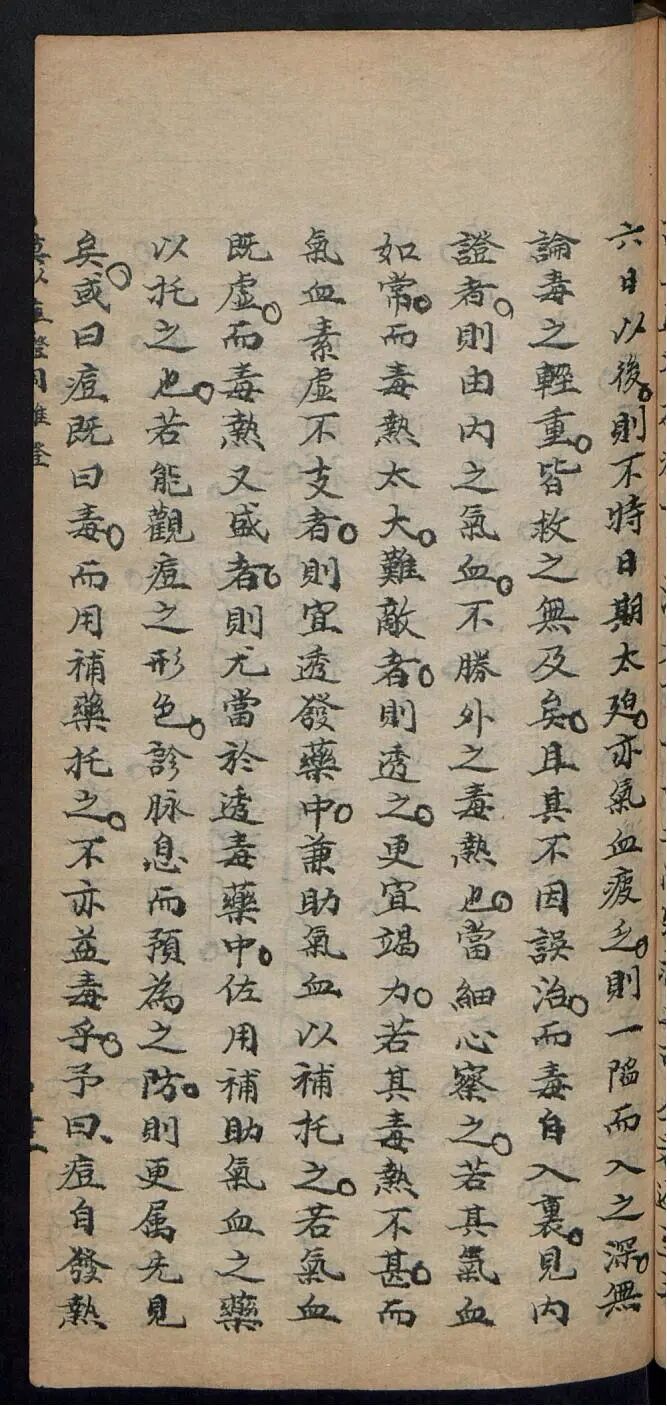 六日以後。則不特日期太廹。亦氣血疲乏。則一陷而入之深。無
論毒之輕重。皆救之無及矣。且其不因誤治。而毒自入裏。見內
證者。則由內之氣血。不勝外之毒熱也。當細心察之。若其氣血
如常。而毒熱太大。難敵者。則透之。更宜竭力。若其毒熱不甚。而
氣血素虛不支者。則宜透發藥中。兼助氣血以補托之。若氣血
既虛。而毒熱又盛者。則尤當於透毒藥中。佐用補助氣血之藥
以托之也。若能觀痘之形色。診脉息而預為之防。則更属先見
矣。或曰痘既曰毒。而用補藥托之。不亦益毒乎。予曰、痘自發熱